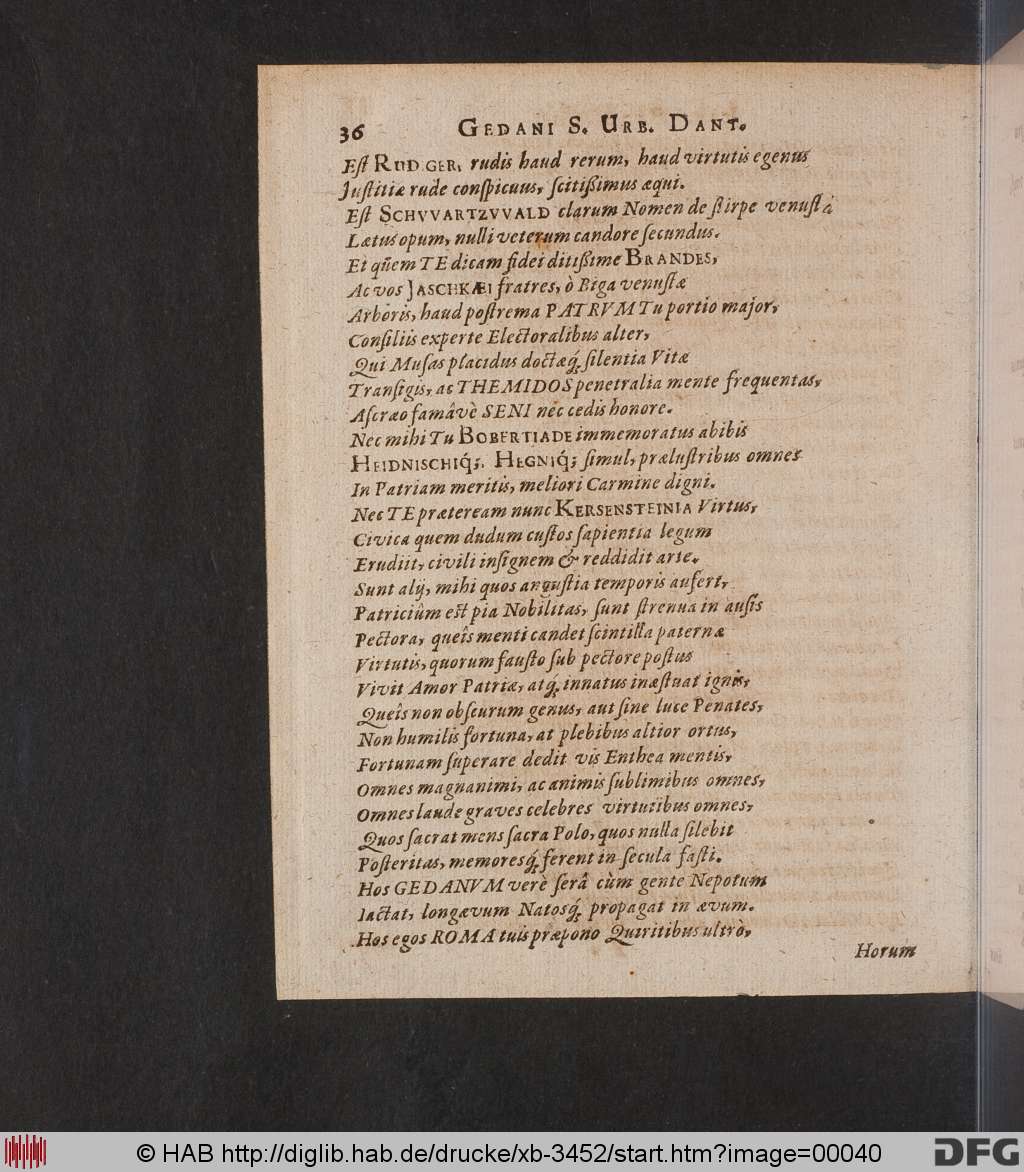 36 GEDANI S. URB. DANT.
Eſt RUDIGER, rudis haud rerum, haud virtutis egenus
Juſtitiæ rude conſpicuus, ſcitißimus æqui.
Eſt SCHVVARTZVVALD clarum Nomen de ſtirpe venuſtâ
Lætus opum, nulli veterum candore ſecundus.
Et quem TE dicam fidei ditißime BRANDES,
Ac vos JASCHKÆI fratres, ò Biga venuſtæ
Arboris, haud poſtrema PATRVM Tu portio major,
Conſiliis experte Electoralibus alter,
Qui Muſas placidus doctæq́; ſilentia Vitæ
Tranſigis, ac THEMIDOS penetralia mente frequentas,
Aſcræo famâvè SENI nec cedis honore.
Nec mihi Tu BOBERTIADE immemoratus abibis
HEIDNISCHIq́;, HEGNIq́; ſimul, præluſtribus omnes
In Patriam meritis, meliori Carmine digni.
Nec TE præteream nunc KERSENSTEINIA Virtus,
Civica quem dudum cuſtos ſapientia legum
Erudiit, civili inſignem & reddidit arte.
Sunt alij, mihi quos anguſtia temporis aufert,
Patriciûm eſt pia Nobilitas, ſunt ſtrenua in auſis
Pectora, queîs menti candet ſcintilla paternæ
Virtutis, quorum fauſto ſub pectore poſtus
Vivit Amor Patriæ, atq́; innatus inæſtuat ignis,
Queîs non obſcurum genus, aut ſine luce Penates,
Non humilis fortuna, at plebibus altior ortus,
Fortunam ſuperare dedit vis Enthea mentis,
Omnes magnanimi, ac animis ſublimibus omnes,
Omnes laude graves celebres virtutibus omnes,
Quos ſacrat mens ſacra Polo, quos nulla ſilebit
Poſteritas, memoresq́; ferent in ſecula faſti.
Hos GEDANVM verè ſerâ cùm gente Nepotum
Iactat, longævum Natosq́; propagat in ævum.
Hos egos ROMA tuis præpono Quiritibus ultrò,
Horum
© HAB http://diglib.hab.de/drucke/xb-3452/start.htm?image=00040
DFG